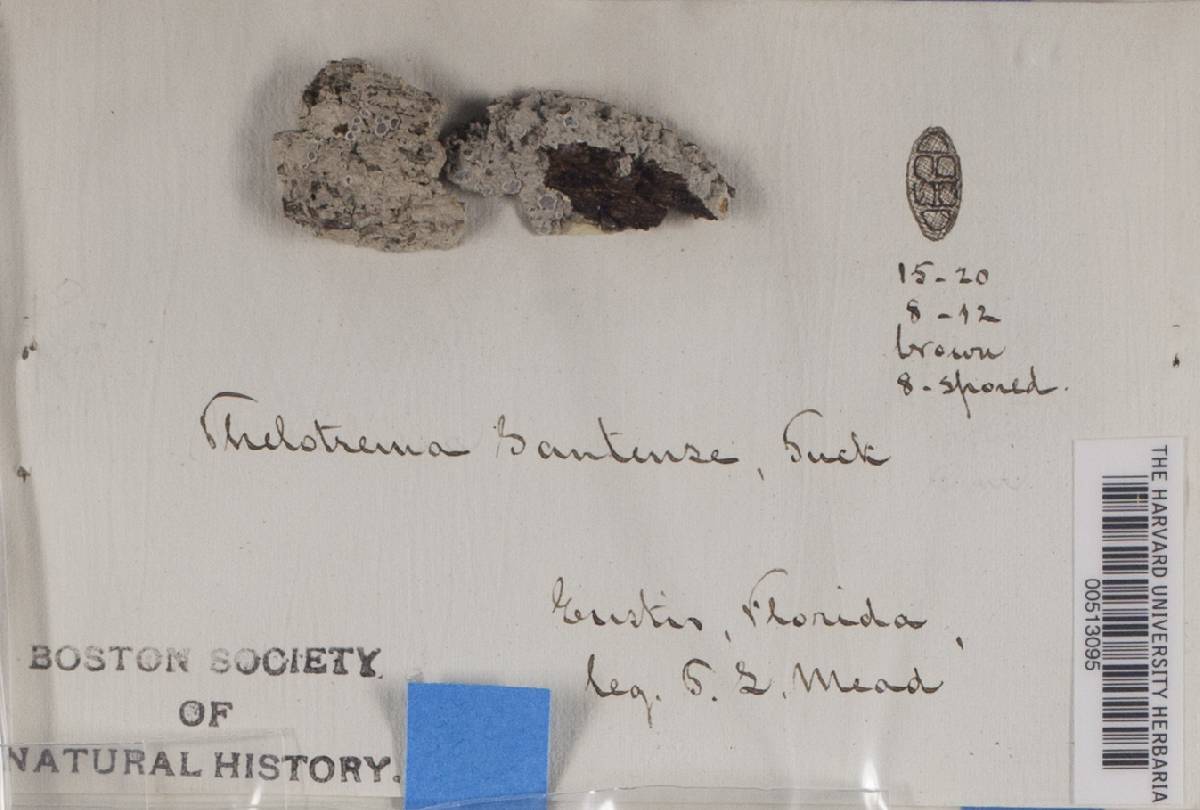 15-20
8-12
brown
8-spored.
Thelotrema Santense, Tuck
Eustis, Florida,
leg. T. L. Mead
BOSTON SOCIETY
OF
NATURAL HISTORY.
THE HARVARD UNIVERSITY HERBARIA
00513095